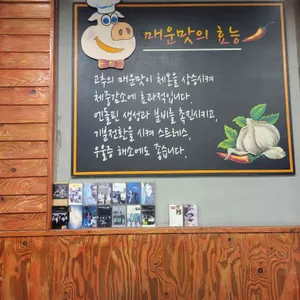 매운맛의 효능
고추의 매운맛이 체온을 상승시켜
체중감소에 효과적입니다.
엔돌핀 생성과 분비를 촉진시키고,
기분전환을 시켜 스트레스,
우울증 해소에도 좋습니다.